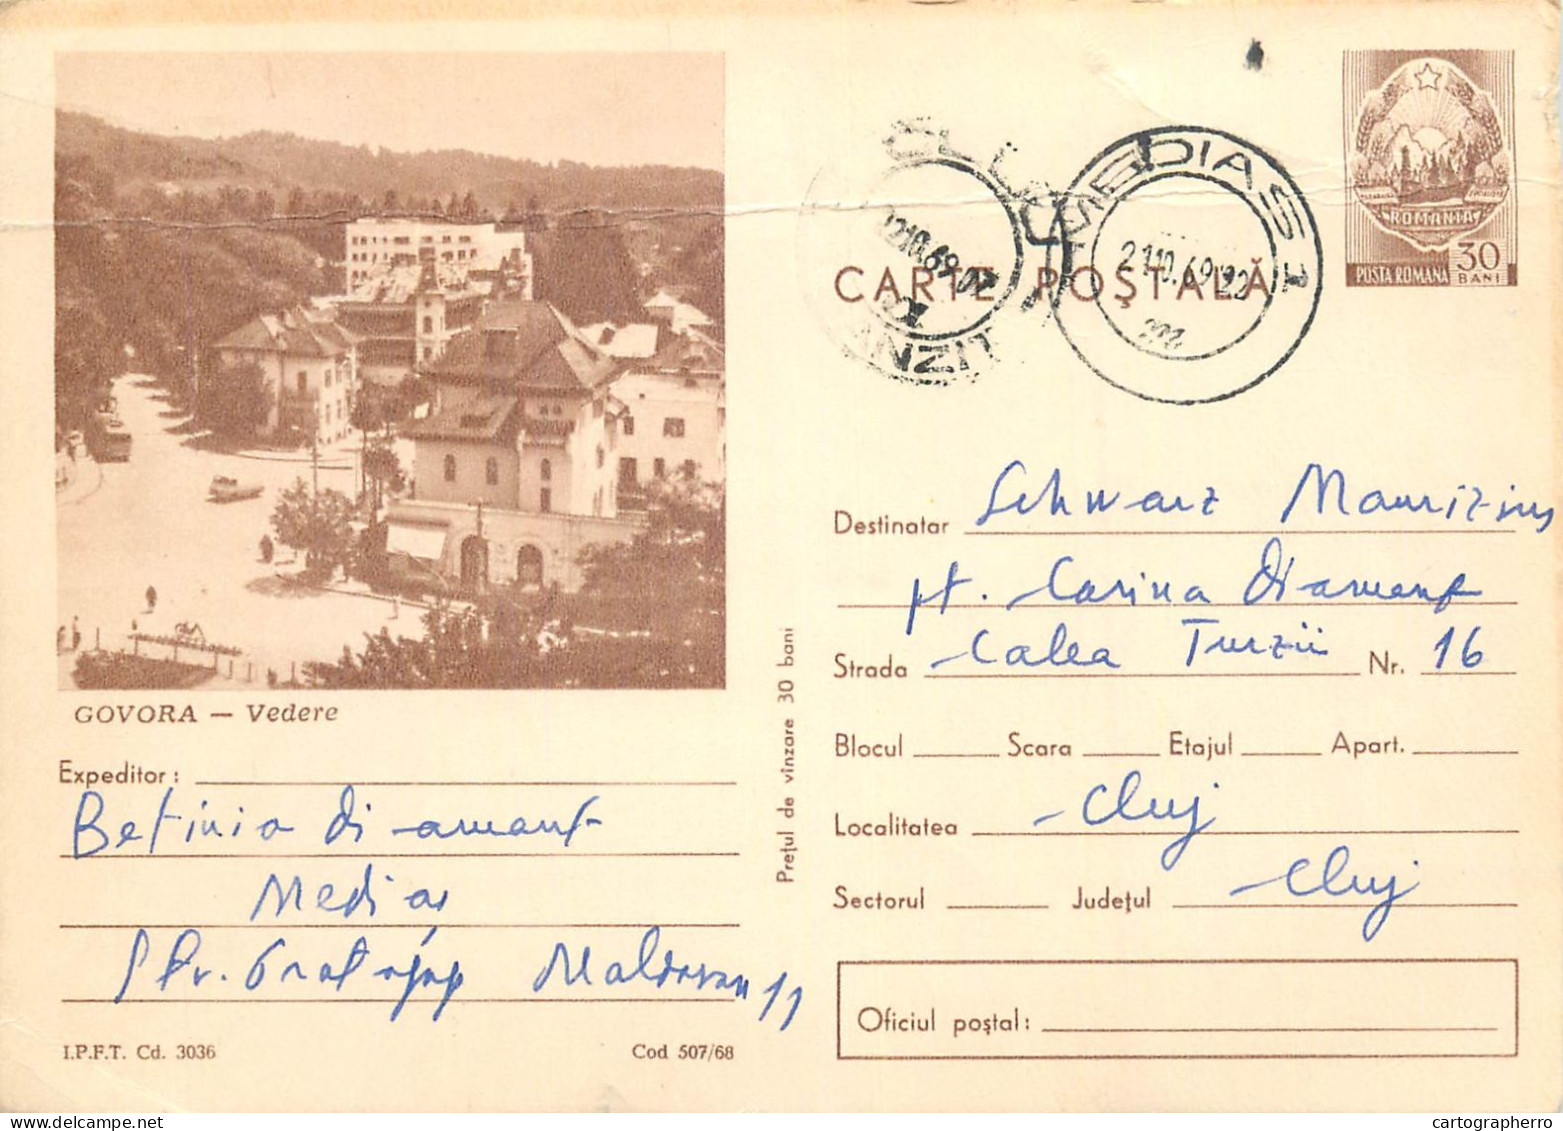 ROMANIA
POSTA ROMANA 30 BANI
CLUJ
TRANZIT
MEDIAS 1
21.10.69
CARTE POȘTALĂ
GOVORA — Vedere
Expeditor:
Betinia Diamant
Mediaș
Str. Maldovan 11
I.P.F.T. Cd. 3036
Cod 507/68
Prețul de vînzare 30 bani
Destinatar Schwarz Maurizius
pt. Carina Diamant
Strada Calea Turzii Nr. 16
Blocul Scara Etajul Apart.
Localitatea Cluj
Sectorul Județul Cluj
Oficiul poștal:
cartographerro